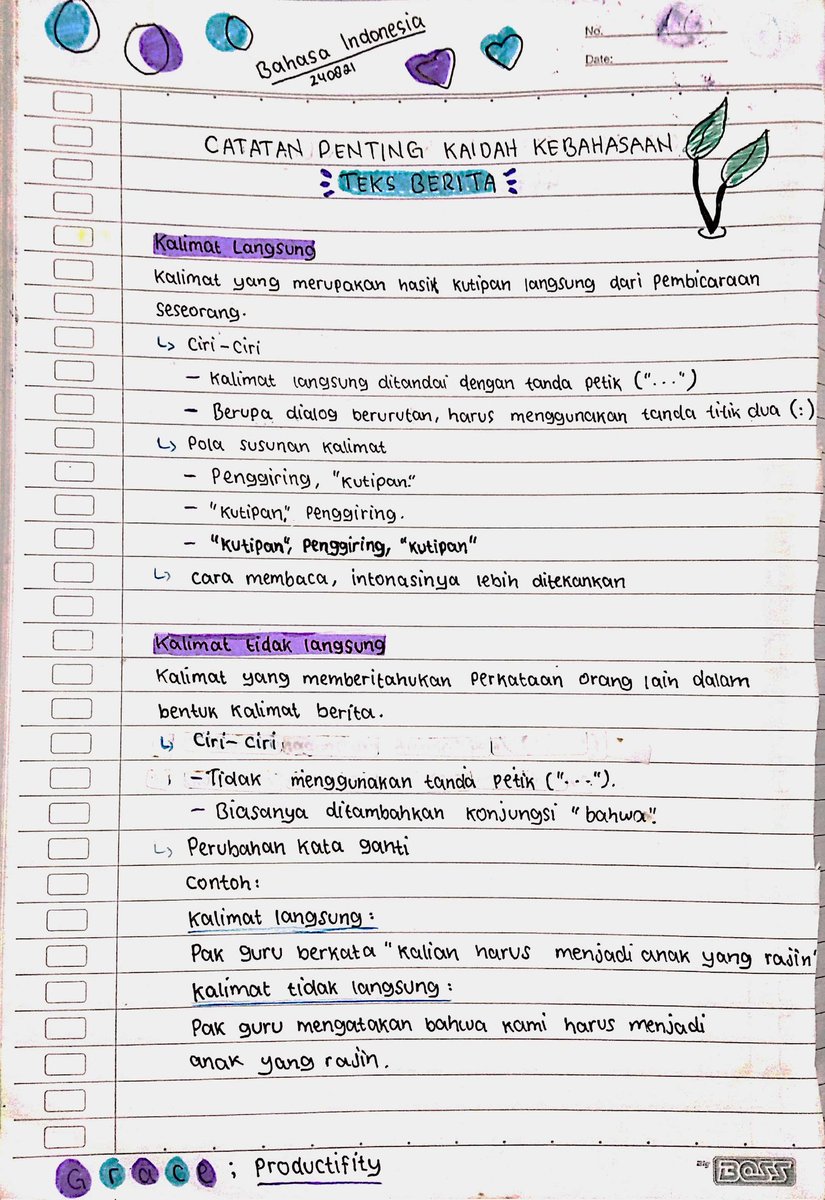 Bahasa Indonesia
240821
No.
Date:
CATATAN PENTING KAIDAH KEBAHASAAN
TEKS BERITA
Kalimat Langsung
Kalimat yang merupakan hasil kutipan langsung dari pembicaraan
seseorang.
↳ Ciri-Ciri
- Kalimat langsung ditandai dengan tanda petik ("...")
- Berupa dialog berurutan, harus menggunakan tanda titik dua (:)
↳ Pola susunan kalimat
- Penggiring, "Kutipan."
- "Kutipan," Penggiring.
- "Kutipan", Penggiring, "Kutipan"
↳ Cara membaca, intonasinya lebih ditekankan
Kalimat tidak langsung
Kalimat yang memberitahukan perkataan orang lain dalam
bentuk kalimat berita.
↳ Ciri-Ciri
- Tidak menggunakan tanda petik ("...").
- Biasanya ditambahkan konjungsi "bahwa".
↳ Perubahan kata ganti
Contoh:
Kalimat langsung:
Pak guru berkata "Kalian harus menjadi anak yang rajin"
Kalimat tidak langsung:
Pak guru mengatakan bahwa kami harus menjadi
anak yang rajin.
Grace; Productifity
Big BOSS